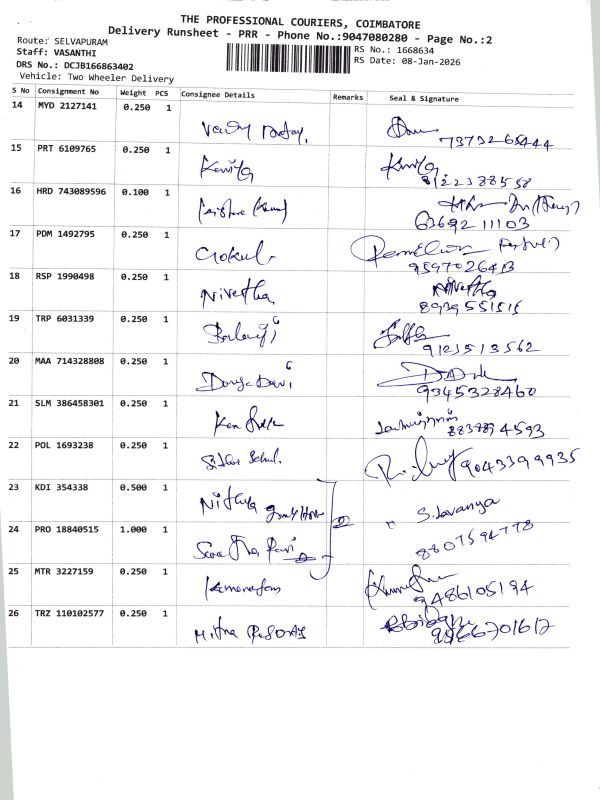 THE PROFESSIONAL COURIERS, COIMBATORE
Delivery Runsheet - PRR - Phone No.:9047080280 - Page No.:2
Route: SELVAPURAM
Staff: VASANTHI
RS No.: 1668634
DRS No.: DCJB166863402
RS Date: 08-Jan-2026
Vehicle: Two Wheeler Delivery
S No Consignment No Weight PCS Consignee Details Remarks Seal & Signature
14 MYD 2127141 0.250 1
7373265444
15 PRT 6109765 0.250 1
Kavitha
8122388558
16 HRD 743089596 0.100 1
6369211103
17 PDM 1492795 0.250 1 Gokul
9597026413
18 RSP 1990498 0.250 1
Nivetha Nivetha
8939551515
19 TRP 6031339 0.250 1
Balaji
9123513562
20 MAA 714328808 0.250 1
Durga Devi
9345328460
21 SLM 386458301 0.250 1
22 POL 1693238 0.250 1
9043399935
23 KDI 354338 0.500 1
Nithya S. Lavanya
24 PRO 18840515 1.000 1
8807594778
25 MTR 3227159 0.250 1
9486105194
26 TRZ 110102577 0.250 1
Mitra